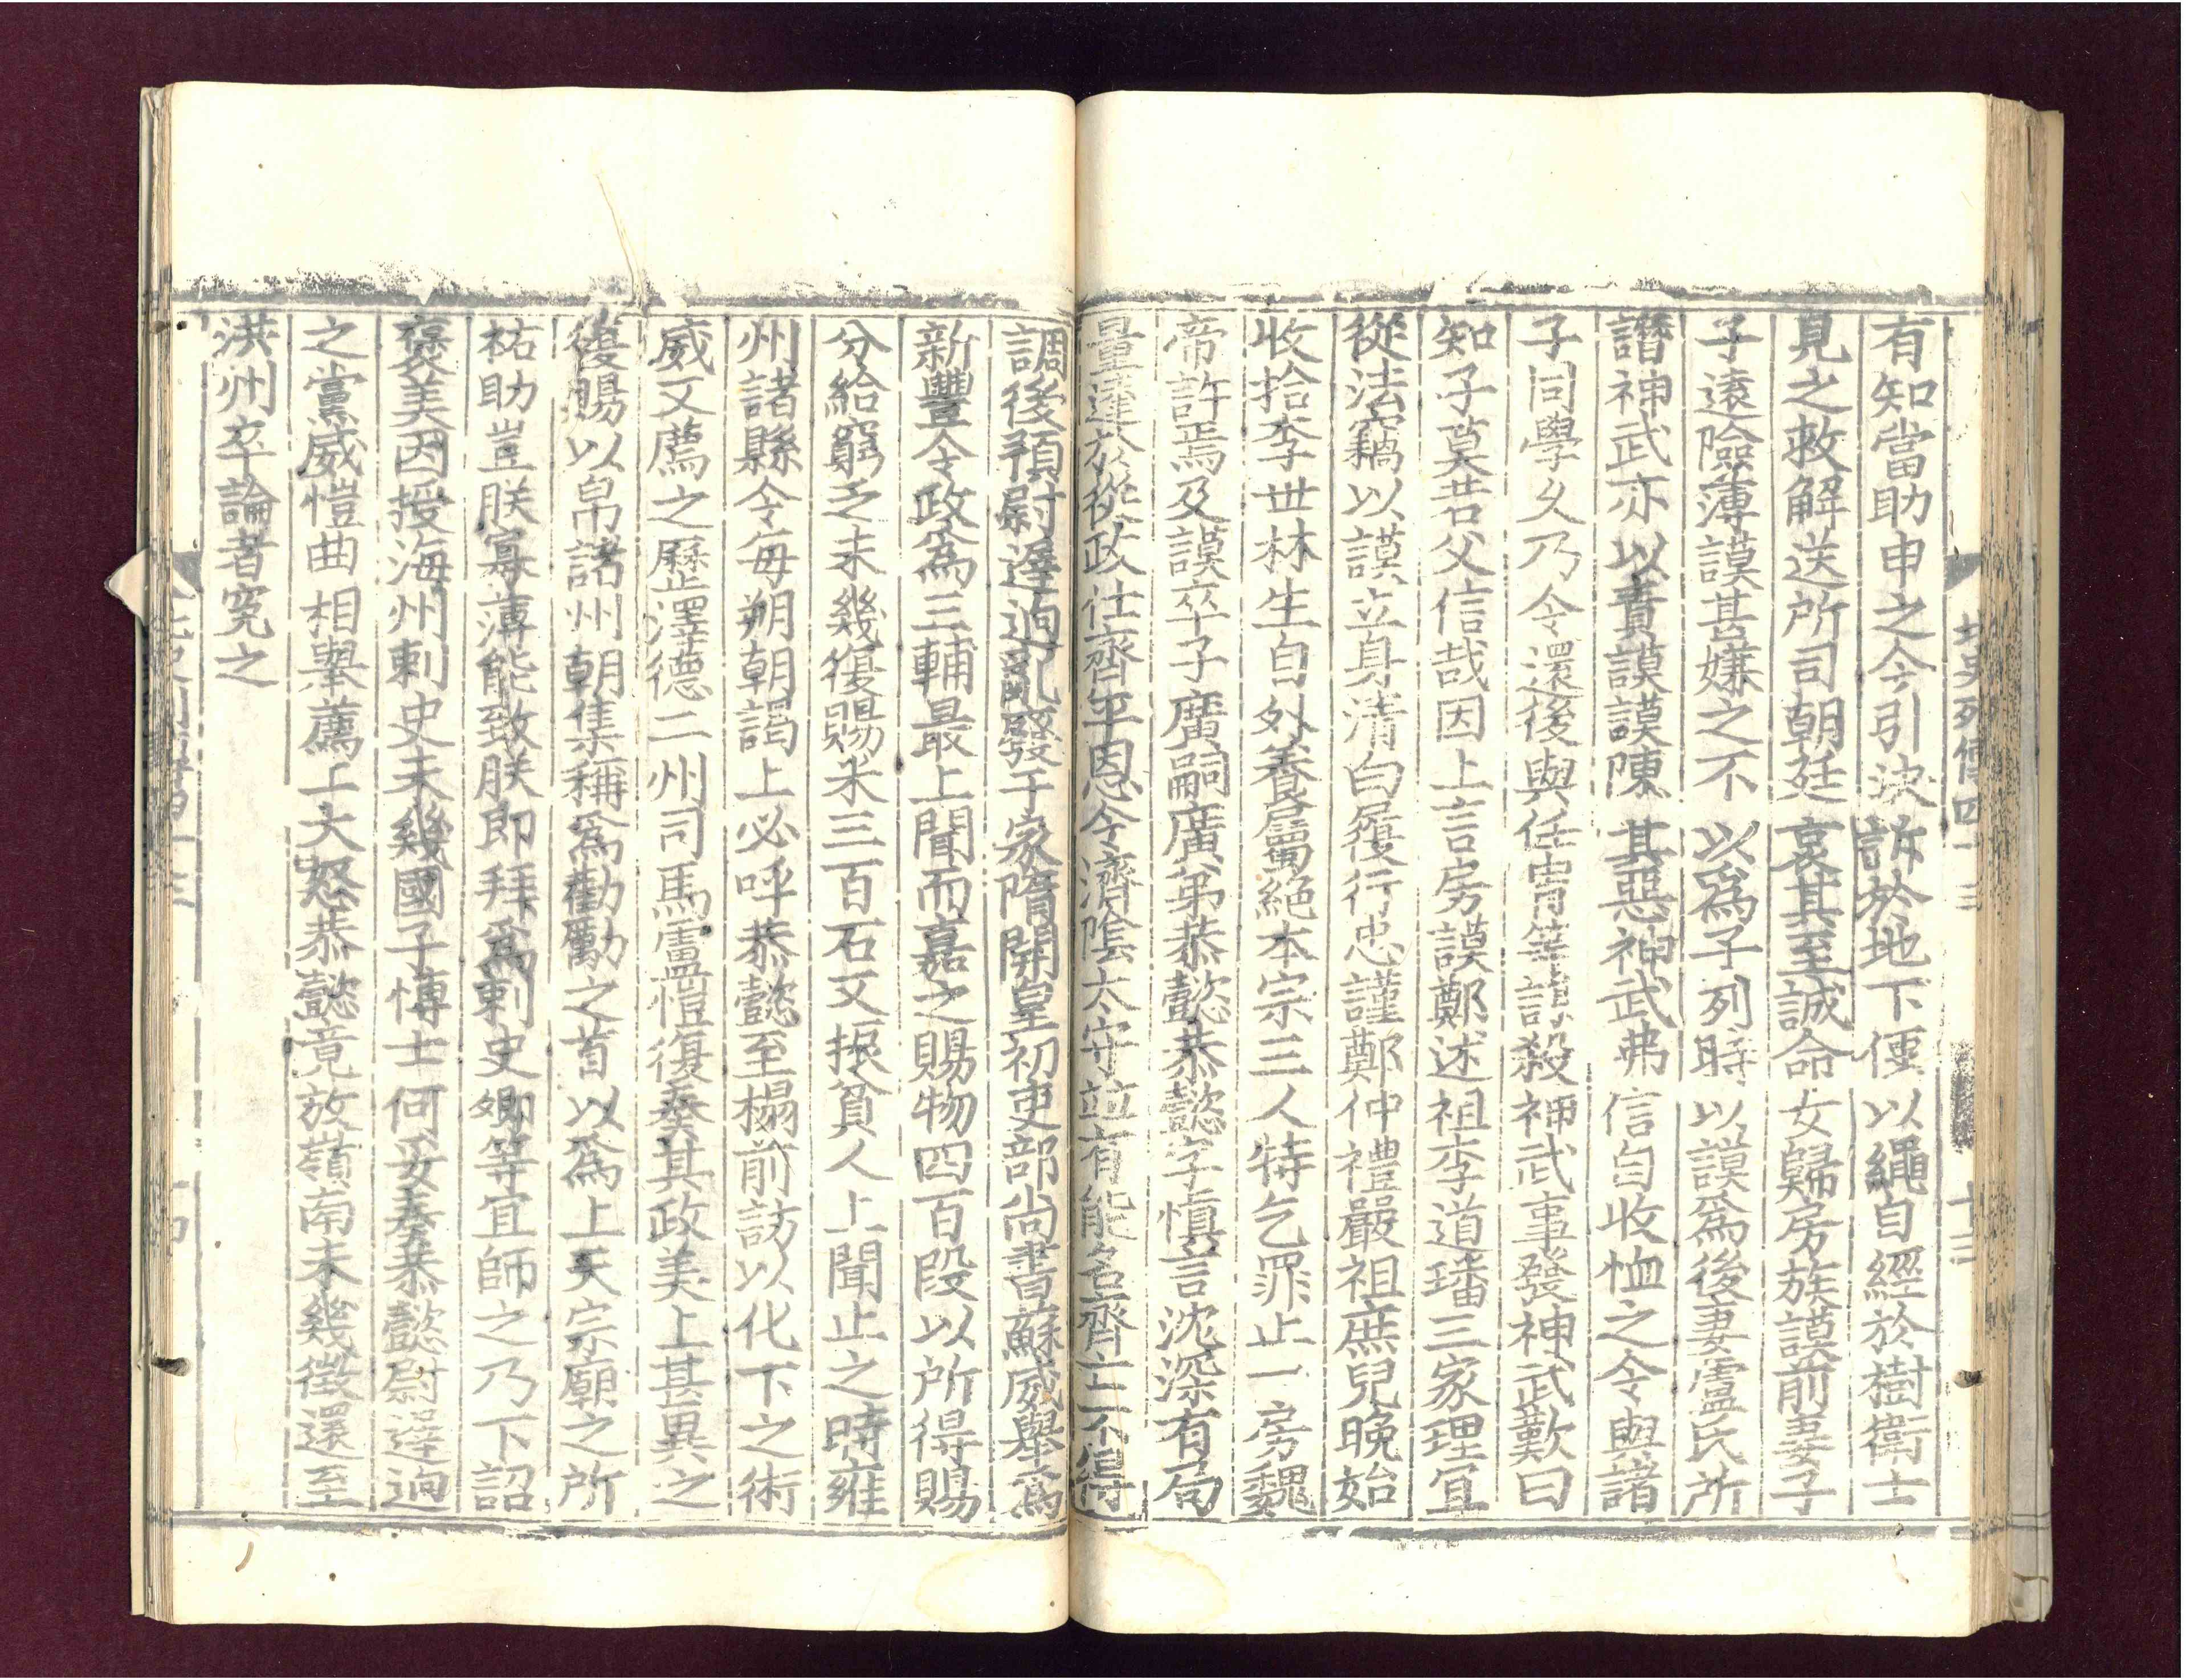 北史列傳四十三 十三
有知當助申之今引決訴於地下便以繩自經於樹衛士
見之救解送所司朝廷哀其至誠命女歸房族謨前妻子
子遠險薄謨甚嫌之不以爲子列時以謨爲後妻盧氏所
譖神武亦以責謨謨陳其惡神武弗信自收恤之令與諸
子同學久乃令還後與任胄等謀殺神武事發神武歎曰
知子莫若父信哉因上言房謨鄭述祖李道璠三家理宜
從法竊以謨立身清白履行忠謹鄭仲禮嚴祖庶兒晚始
收拾李世林生自外養屬絕本宗三人特乞罪止一房魏
帝許焉及謨卒子廣嗣廣弟恭懿恭懿字慎言沈深有局
量達於從政仕齊平恩令濟陰太守並有能名齊亡不得
調後預尉遲迥亂廢于家隋開皇初吏部尚書蘇威舉爲
新豐令政爲三輔最上聞而嘉之賜物四百段以所得賜
分給窮乏未幾復賜米三百石又振貧人上聞止之時雍
州諸縣令每朔朝謁上必呼恭懿至榻前訪以化下之術
威又薦之歷澤德二州司馬盧愷復奏其政美上甚異之
復賜以帛諸州朝集稱爲勸勵之首以爲上天宗廟之所
祐助豈朕寡薄能致朕即拜爲刺史卿等宜師之乃下詔
襃美因授海州刺史未幾國子博士何妥奏恭懿尉遲迥
之黨威愷曲相舉薦上大怒恭懿竟放嶺南未幾徵還至
洪州卒論者寃之